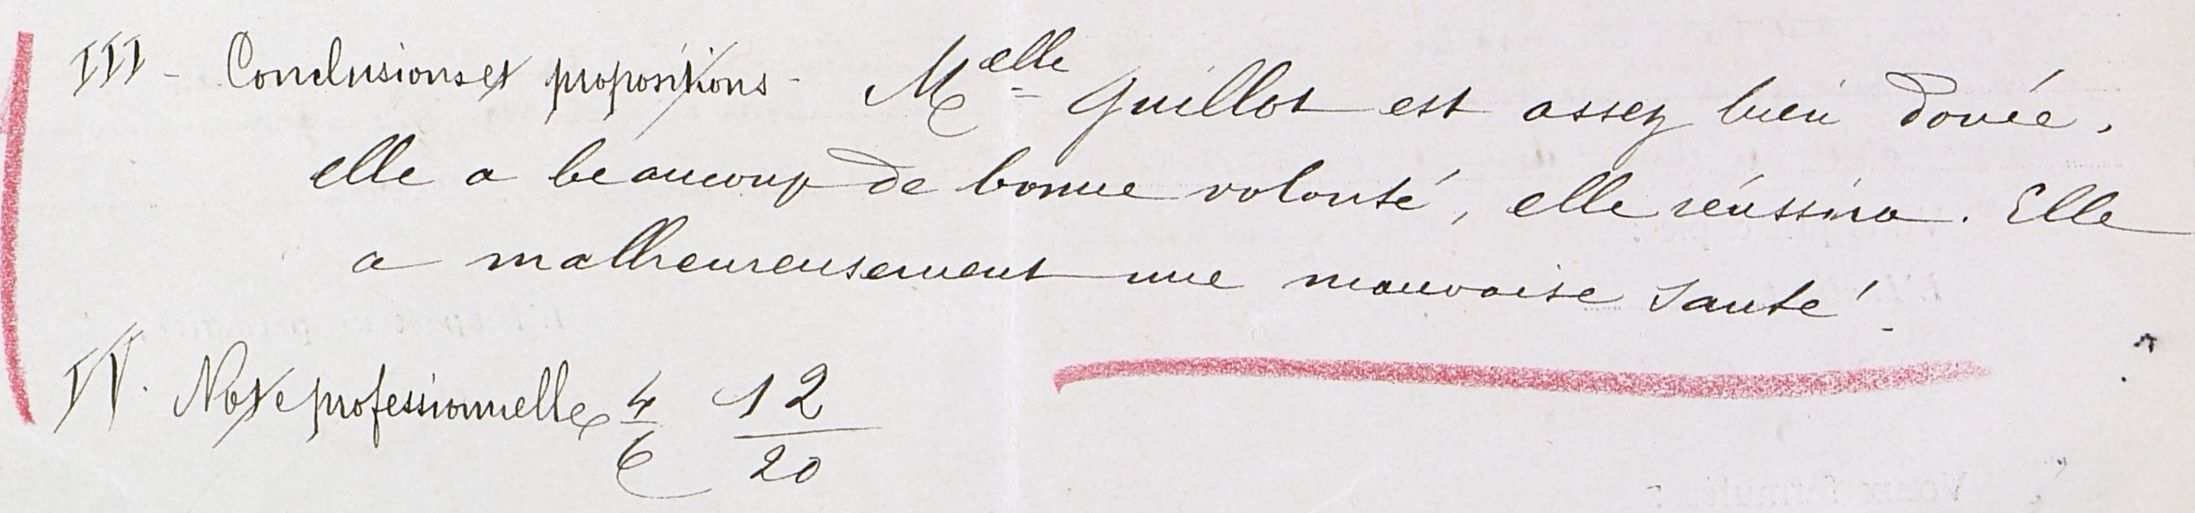 III - Conclusions et propositions - Melle Guillot est assez bien douée,
elle a beaucoup de bonne volonté, elle réussira. Elle
a malheureusement une mauvaise santé.
IV. Note professionnelle 4/6 12/20